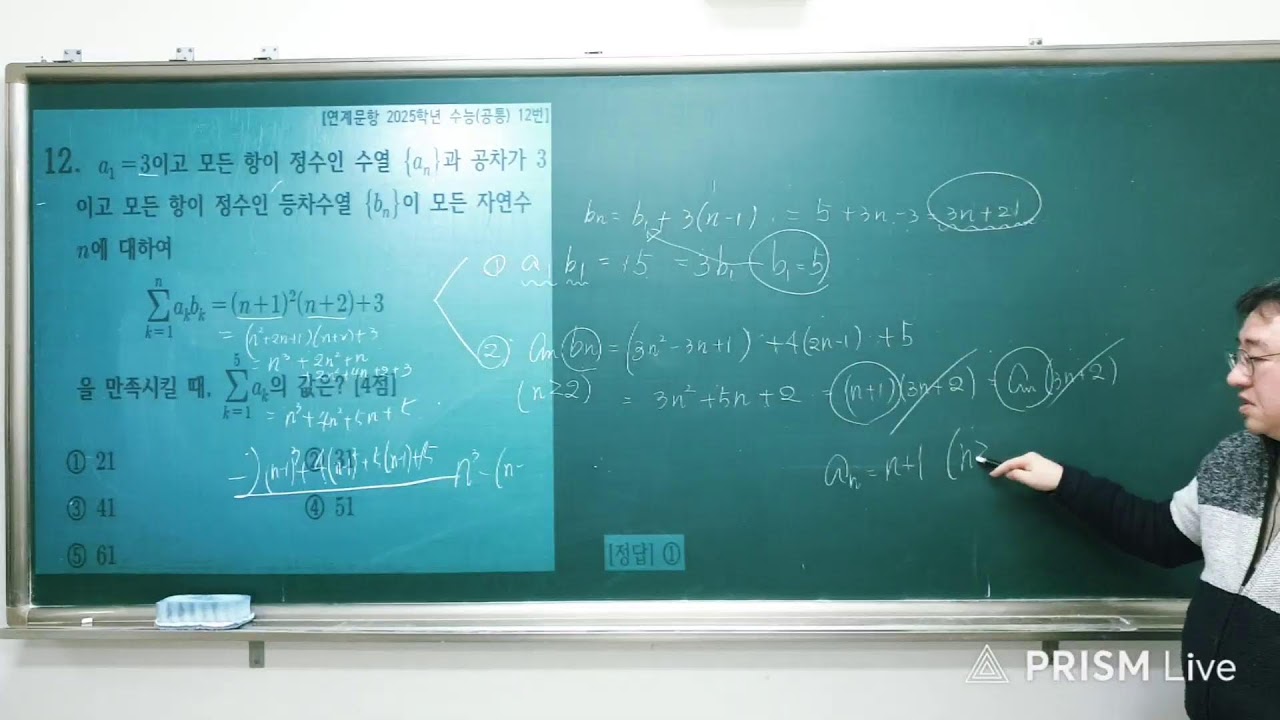 [연계문항 2025학년 수능(공통) 12번]
12. a₁=3이고 모든 항이 정수인 수열 {aₙ}과 공차가 3
이고 모든 항이 정수인 등차수열 {bₙ}이 모든 자연수
n에 대하여
∑_{k=1}^{n} aₖbₖ = (n+1)²(n+2)+3
= (n²+2n+1)(n+2)+3
= n³+2n²+n
+2n²+4n+2+3
을 만족시킬 때, ∑_{k=1}^{5} aₖ의 값은? [4점]
= n³+4n²+5n+5
-) (n-1)³+4(n-1)²+5(n-1)+5
n³-(n-
① 21
② 31
③ 41
④ 51
⑤ 61
bₙ = b₁+3(n-1) = 5+3n-3 = 3n+21
① a₁b₁ = 15 = 3b₁ b₁=5
② aₙbₙ = (3n²-3n+1)+4(2n-1)+5
(n≥2) = 3n²+5n+2 = (n+1)(3n+2) = aₙ(3n+2)
aₙ = n+1 (n≥
[정답] ①
PRISM Live